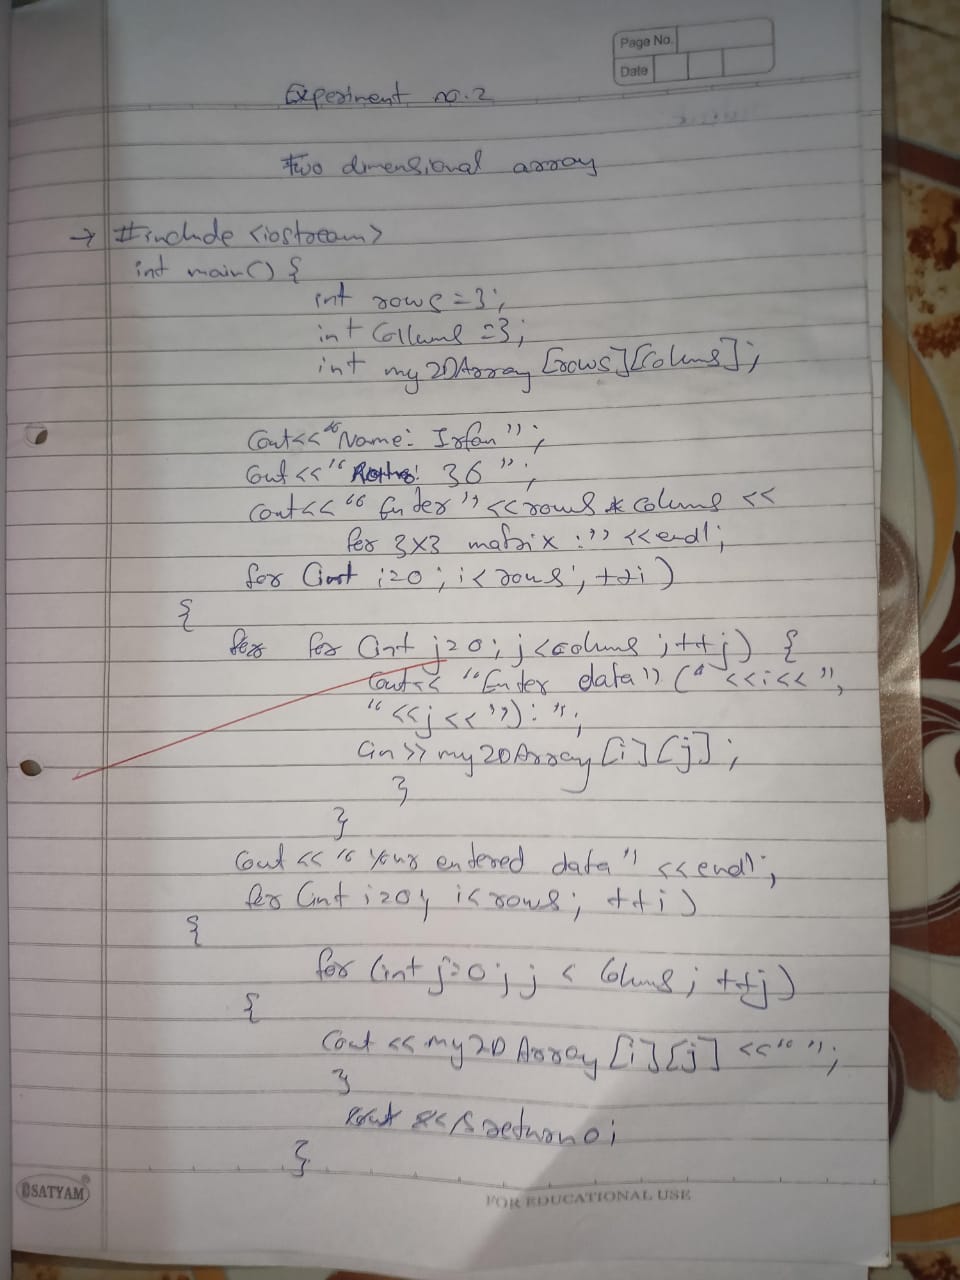 Page No.
Date
Experiment no.2
Two dimensional array
→ #include <iostream>
int main() {
int rows = 3;
int Collums = 3;
int my2DArray [rows][Colums];
Cout<<"Name: Irfan";
Cout <<" 36 ";
Cout<< " Enter " << rows * colums <<
for 3X3 matrix :" << endl;
for (int i=0; i< rows; ++i)
{
for for (int j=0; j<colums; ++j) {
Cout<< "Enter data" (" <<i<< ",
" <<j<< "): ";
Cin >> my2DArray [i][j];
}
}
Cout << " Your entered data " << endl;
for (int i=0; i< rows; ++i)
{
for (int j=0; j < Colums; ++j)
{
Cout << my2DArray [i][j] <<" ";
}
return 0;
}
SATYAM
FOR EDUCATIONAL USE